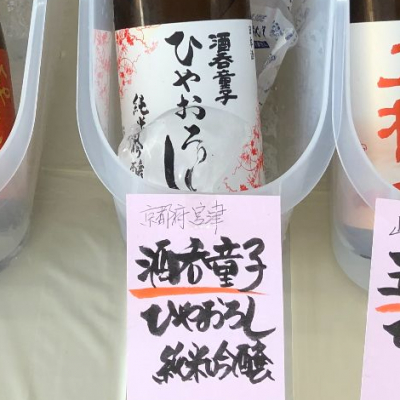 酒呑童子
ひやおろし
純米吟醸
京都府宮津
酒呑童子
ひやおろし
純米吟醸